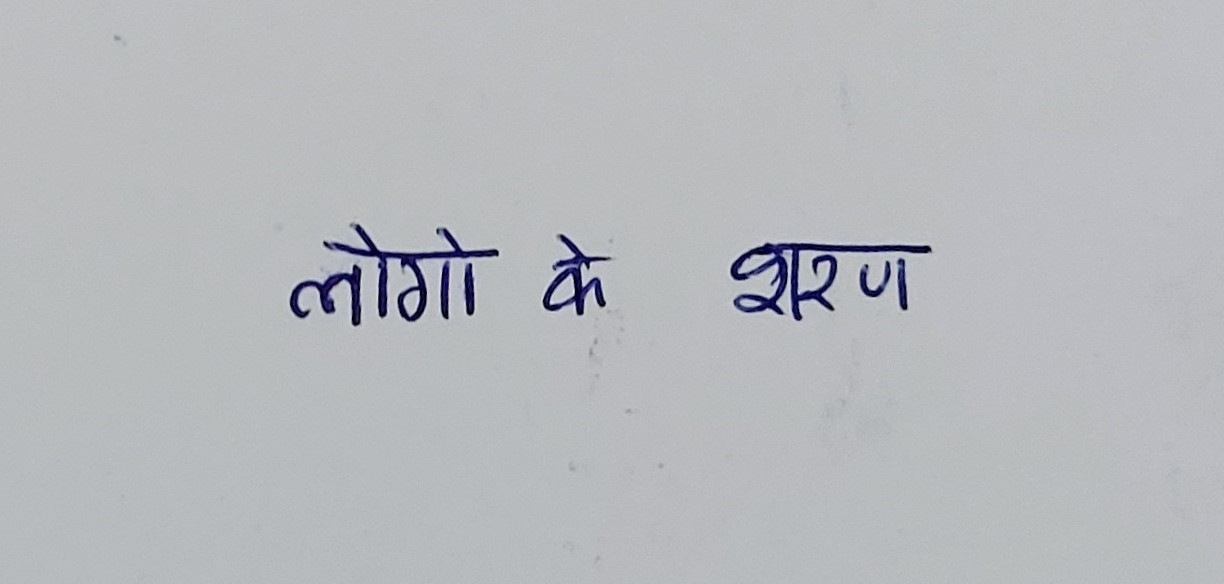 लोगो के शरण